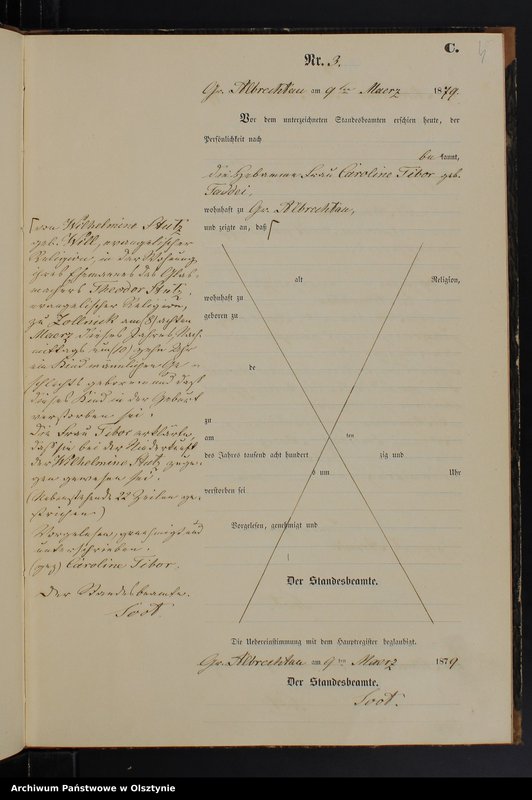 C.
Nr. 3.
Gr. Albrechtau am 9ten Maerz 1879.
Vor dem unterzeichneten Standesbeamten erschien heute, der
Persönlichkeit nach
bekannt,
die Hebamme Frau Caroline Tibor geb.
Taddei,
wohnhaft zu Gr. Albrechtau,
und zeigte an, daß
von Wilhelmine Stutz
geb. Will, evangelischer
Religion, in der Wohnung
ihres Ehemannes des
machers Theodor Stutz,
evangelischer Religion,
zu Zollnick am (8) achten
Maerz dieses Jahres Nach-
mittags um (10) zehn Uhr
ein Kind männlichen Ge-
schlechts geboren und daß
dieses Kind in der Geburt
verstorben sei.
Die Frau Tibor erklärte,
daß sie bei der Niederkunft
der Wilhelmine Stutz zuge-
gen gewesen sei.
(Nebenstehende 22 Zeilen ge-
strichen)
Vorgelesen, genehmigt und
unterschrieben.
(gez) Caroline Tibor.
Der Standesbeamte.
Soot
alt Religion,
wohnhaft zu
geboren zu
de
zu
am ten
des Jahres tausend acht hundert zig und
s um Uhr
verstorben sei
Vorgelesen, genehmigt und
Der Standesbeamte.
Die Uebereinstimmung mit dem Hauptregister beglaubigt.
Gr. Albrechtau am 9ten Maerz 1879.
Der Standesbeamte.
Soot.
Archiwum Państwowe w Olsztynie